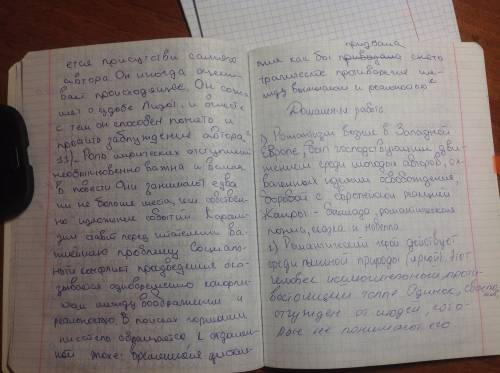 ется присутствие самого
автора. Он иногда оцени-
вает происходящее. Он сожа
леет о судьбе Лизы, и вместе
с тем он способен понять и
простить заблуждение автора.
11) - Роль лирических отступлений
необыкновенно важна и велика
в повести. Они занимают едва
ли не больше места, чем собственно
изложение событий. Карам-
зин ставит перед читателем ва-
жнейшую проблему. Социаль-
ный конфликт предоведения ока-
зывается одновременно конфли-
ктом между воображением и
реальностью. В поисках гармонии
писатель обращается к отдален-
ной эпохе: временная дистан-
призвана
ция как бы снять
трагическое противоречие ме-
жду вымыслом и реальностью
Домашняя работа
1) Романтизм возник в Западной
Европе, был господствующим дви-
жением среди молодых авторов, ох-
ваченных идеями освобождения,
борьбой с европейской реакцией
Жанры: - баллада, романтическая
поэма, сказка и новелла.
2) Романтический герой действует
среди пышной природы (яркой). Этот
человек исключительный, проти-
востоящий толпе. Одинок,
отчужден от людей, кото-
рые не понимают его